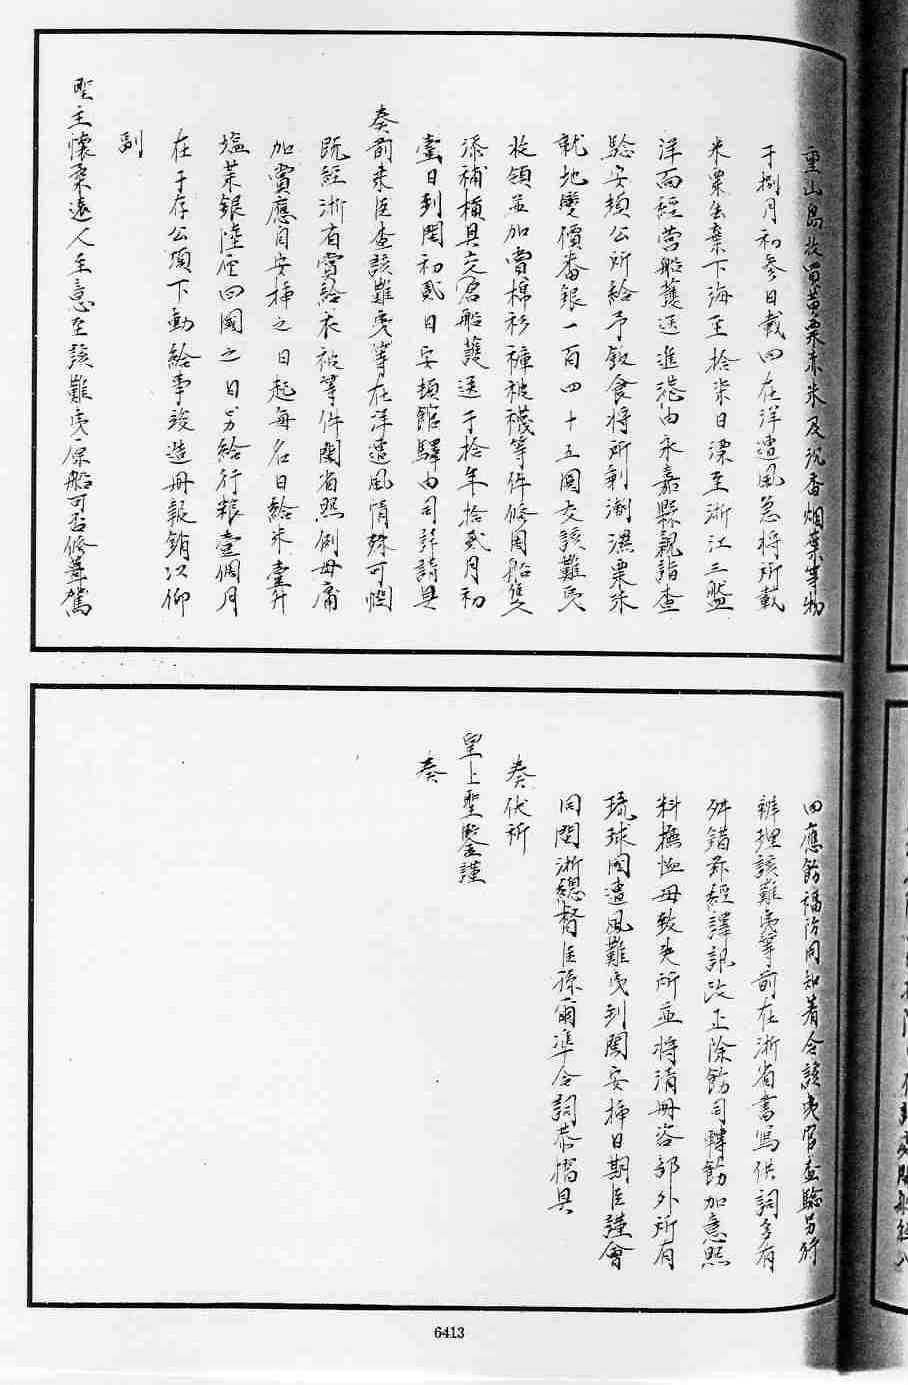 重山島收買黃粟赤米及祝香烟葉等物
于捌月初叁日載回在洋遭風急將所載
米粟丢棄下海至拾柒日漂至浙江三盤
洋面經營船護送進港由永嘉縣親詣查
驗安頓公所給予飯食將所剩潮濕粟米
就地變價番銀一百四十五圓交該難夷
收領並加賞棉衫褲被襪等件修固船隻
添補槓具交舀船護送于拾年拾貳月初
壹日到閩初貳日安頓館驛由司詳請具
奏前來臣查該難夷等在洋遭風情殊可憫
既經浙省賞給衣被等件閩省照例毋庸
加賞應自安揷之日起每名日給米壹升
塩菜銀陸厘回國之日另給行粮壹個月
在于存公項下動給事竣造冊報銷以仰
副
聖主懷柔遠人至意至該難夷原船可否修葺駕
回應飭福防同知着令該夷官查驗另行
辦理該難夷等前在浙省書寫供詞多有
舛錯亦經譯訊改正除飭司轉飭加意照
料撫恤毋致失所並將清冊咨部外所有
琉球國遭風難夷到閩安揷日期臣謹會
同閩浙總督臣孫爾準合詞恭摺具
奏伏祈
皇上聖鑒謹
奏
6413